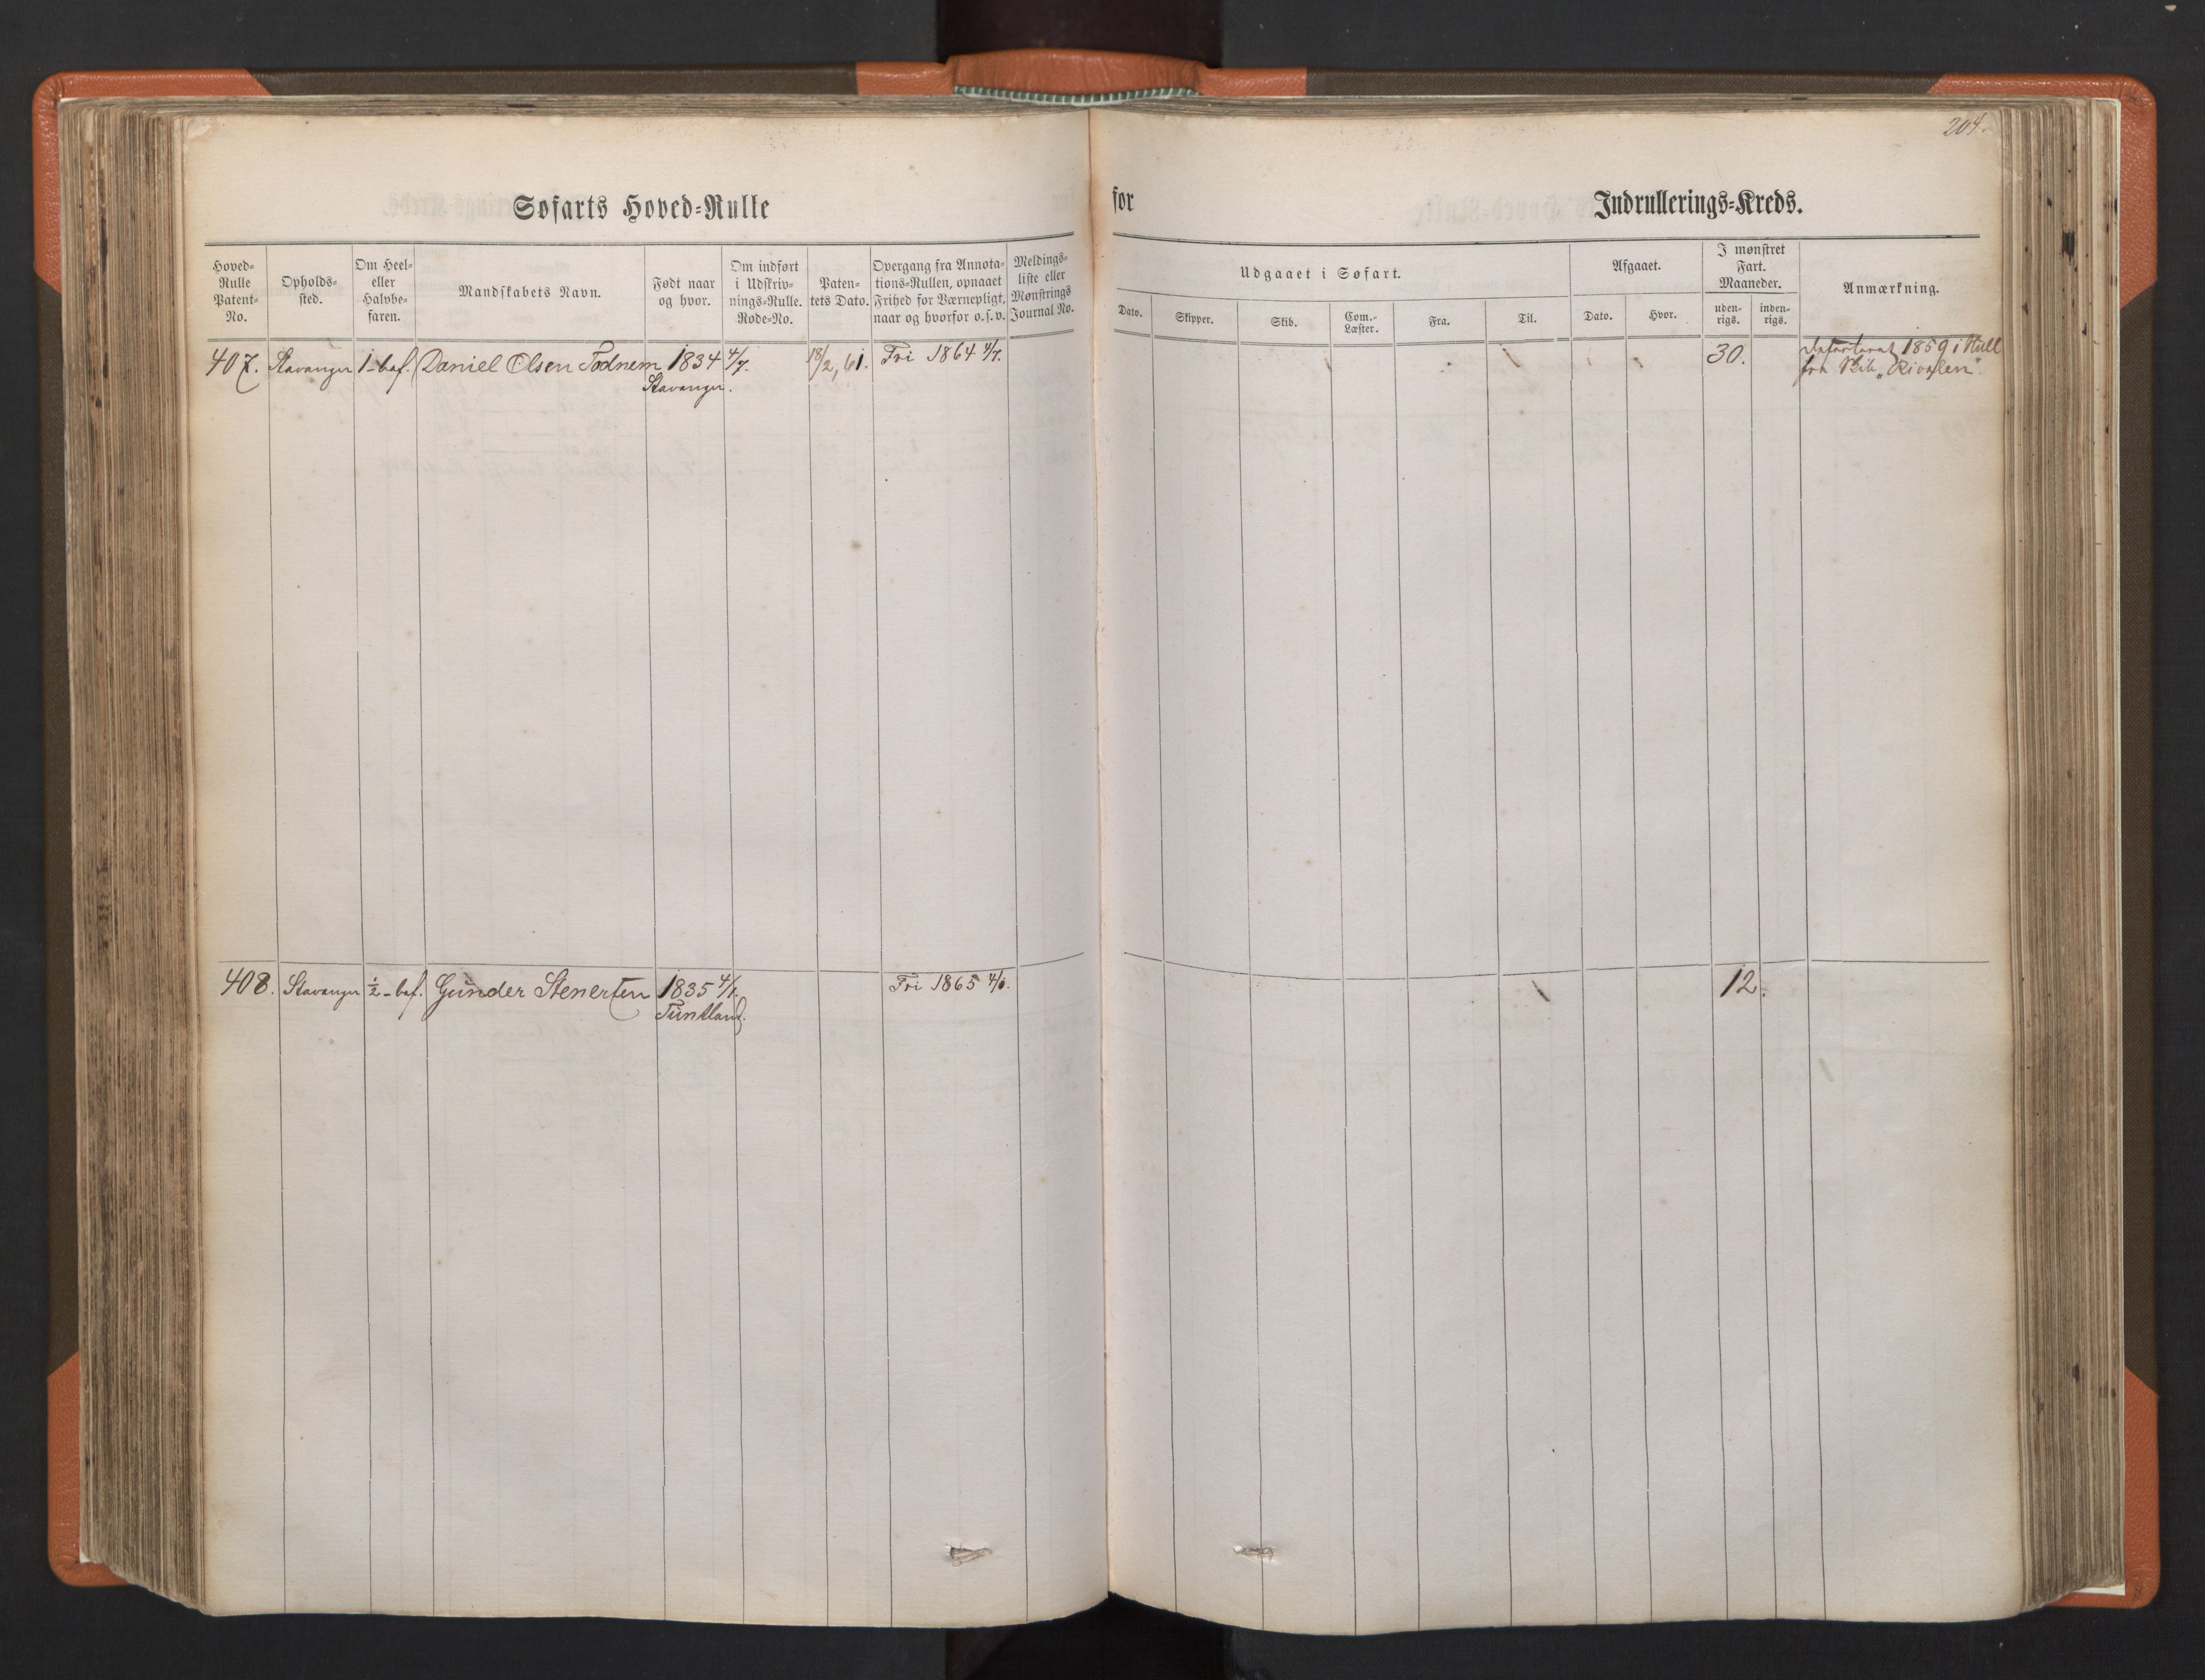 204.
Søfarts Hoved=Rulle for Indrullerings=Kreds.
Hoved=
Rulle
Patent=
No.
Opholds=
sted.
Om Heel=
eller
Halvbe=
faren.
Mandskabets Navn.
Født naar
og hvor.
Om indført
i Udskriv=
nings=Rulle.
Rode=No.
Paten=
tets Dato.
Overgang fra Annota=
tions=Rullen, opnaaet
Frihed for Værnepligt,
naar og hvorfor o.s.v.
Meldings=
liste eller
Mønstrings
Journal No.
Udgaaet i Søfart.
Dato.
Skipper.
Skib.
Com.=
Læster.
Fra.
Til.
Afgaaet.
Dato.
Hvor.
I mønstret
Fart.
Maaneder.
uden=
rigs.
inden=
rigs.
Anmærkning.
407. Stavanger 1-bef. Daniel Olsen Todnem 1834 4/7. 18/2, 61. Fri 1864 4/7. 30. 1859 i Hull
Stavanger. fra Skib „Rivalen“.
408. Stavanger ½-bef. Gunder Stenersen 1835 4/1. Fri 1865 4/1. 12.